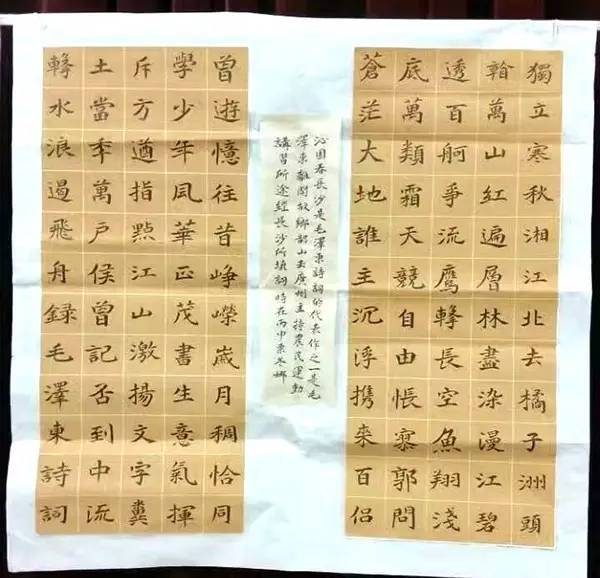 獨立寒秋湘江北去橘子洲頭
翰萬山紅遍層林盡染漫江碧
透百舸爭流鷹擊長空魚翔淺
底萬類霜天競自由悵寥郭問
蒼茫大地誰主沉浮携來百侣
沁園春長沙是毛澤東詩詞的代表作之一是毛
澤東離開故鄉韶山去廣州主持農民運動
講習所途經長沙所填詞 時在丙申
曾遊憶往昔崢嶸歲月稠恰同
學少年風華正茂書生意氣揮
斥方遒指點江山激揚文字糞
土當秊萬戶侯曾記否到中流
擊水浪遏飛舟録毛澤東詩詞